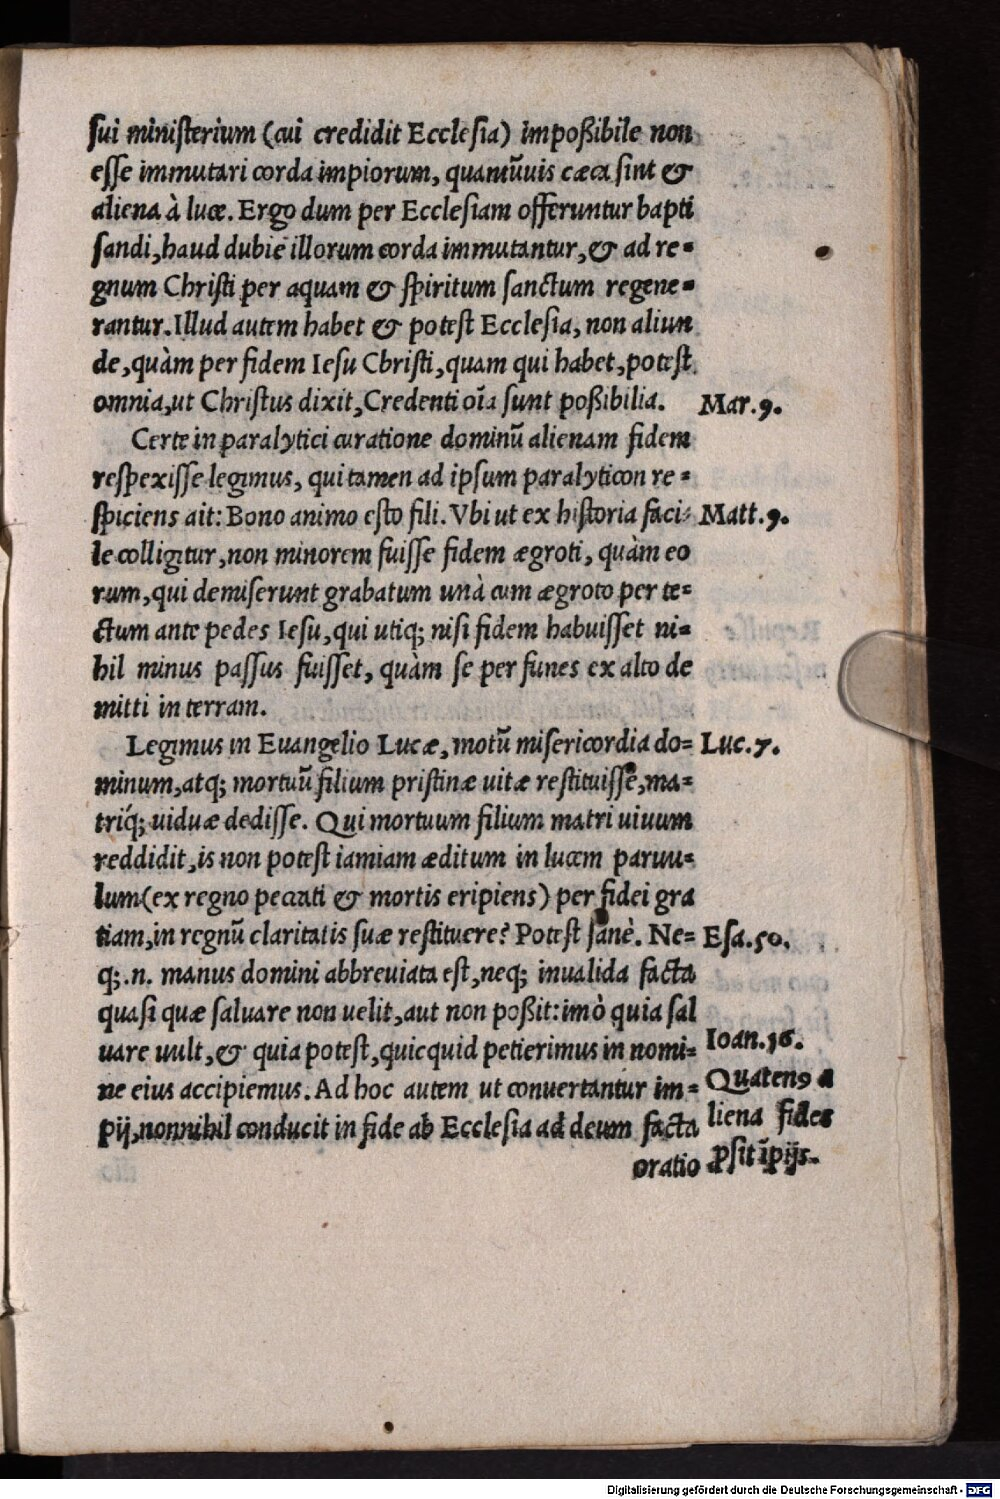 sui ministerium (cui credidit Ecclesia) impoßibile non
esse immutari corda impiorum, quamũuis cæca sint &
aliena à luce. Ergo dum per Ecclesiam offeruntur bapti
sandi, haud dubiè illorum corda immutantur, & ad re=
gnum Christi per aquam & spiritum sanctum regene=
rantur. Illud autem habet & potest Ecclesia, non aliun
de, quàm per fidem Iesu Christi, quam qui habet, potest
omnia, ut Christus dixit, Credenti oĩa sunt poßibilia.
Mar. 9.
Certe in paralytici curatione dominũ alienam fidem
respexisse legimus, qui tamen ad ipsum paralyticon re=
spiciens ait: Bono animo esto fili. Vbi ut ex historia faci=
Matt. 9.
le colligitur, non minorem fuisse fidem ægroti, quàm eo
rum, qui demiserunt grabatum unà cum ægroto per te=
ctum ante pedes Iesu, qui utiq; nisi fidem habuisset ni=
hil minus passus fuisset, quàm se per funes ex alto de
mitti in terram.
Legimus in Euangelio Lucæ, motũ misericordia do=
Luc. 7.
minum, atq; mortuũ filium pristinæ uitæ restituisse, ma=
triq́; uiduæ dedisse. Qui mortuum filium matri uiuum
reddidit, is non potest iamiam æditum in lucem paruu=
lum (ex regno peccati & mortis eripiens) per fidei gra
tiam, in regnũ claritatis suæ restituere? Potest sanè. Ne=
Esa. 50.
q; .n. manus domini abbreuiata est, neq; inualida facta
quasi quæ saluare non uelit, aut non poßit: imò quia sal
uare uult, & quia potest, quicquid petierimus in nomi=
Ioan. 16.
ne eius accipiemus. Ad hoc autem ut conuertantur im=
Quaten9 a
pij, nonnihil conducit in fide ab Ecclesia ad deum facta
liena fides
oratio
ꝓsit ĩpijs.
Digitalisierung gefördert durch die Deutsche Forschungsgemeinschaft - DFG